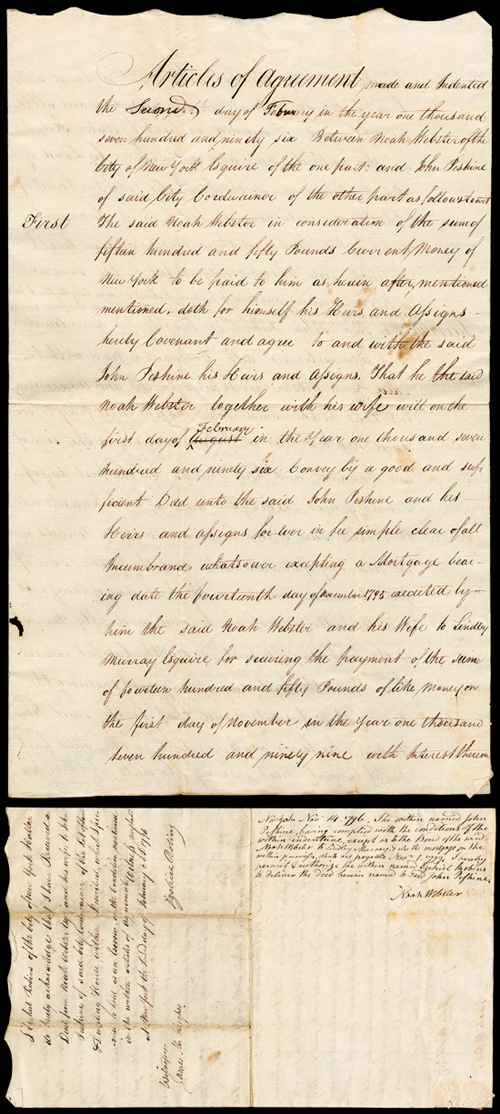 Articles of agreement, made and Indented
the Second day of February in the year one thousand
seven hundred and ninety six Between Noah Webster of the
City of New York Esquire of the one part: and John Peshine
of said City Cordwainer of the other part as follows
First The said Noah Webster in consideration of the sum of
fifteen hundred and fifty Pounds Current Money of
New York to be paid to him as herein after, mentioned
mentioned, doth for himself his Heirs and Assigns
hereby Covenant and agree to and with the said
John Peshine his Heirs and Assigns. That he the said
Noah Webster together with his wife will on the
February
first day of August in the Year one thousand seven
hundred and ninety six Convey by a good and suf-
ficient Deed unto the said John Peshine and his
Heirs and assigns for ever in fee simple clear of all
Incumbrance whatsoever excepting a Mortgage bear-
ing date the fourteenth day of November 1795 executed by
him the said Noah Webster and his Wife to Lindley
Murray Esquire for securing the payment of the sum
of fourteen hundred and fifty Pounds of like Money on
the first day of November in the Year one thousand
seven hundred and ninety nine with Interest thereon
I Ezekiel Robins of the city of New York Hatter
do hereby acknowledge that I have Received a
Deed from Noah Webster Esq. and his wife to John
Peshine of said City Cordwainer of the Lot of
& Dwelling House within
me to hold as an Escrow on the Condition mentioned
in the within articles of agreement Witness my hand
at New York the third day of February 1796
Ezekiel Robins
Witness
James M. Hughes
New York Nov. 14. 1796. The within named John
Peshine, having complied with the conditions of the
within indenture, except as to the Bond of the said
Noah Webster to Lindley Murray, & also the mortgage on the
within premises, which are payable Nov. 1. 1799, I hereby
& authorize the within named Ezekiel Robins
to deliver the Deed herein named to said John Peshine.
Noah Webster